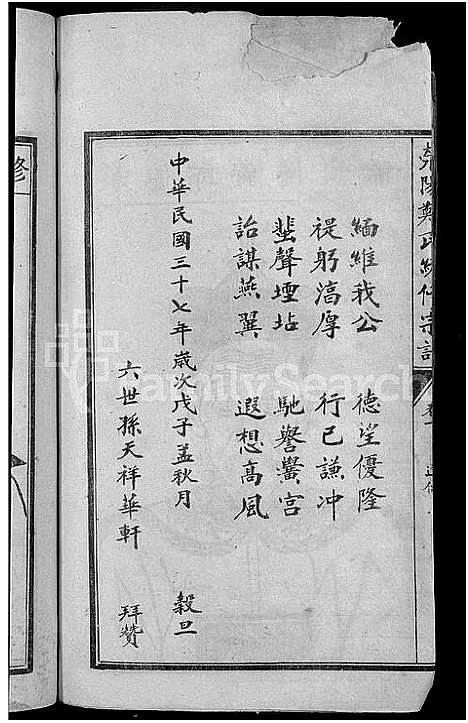 滎陽鄭氏續修宗譜 卷一
緬維我公 德望優隆
禔躬渟厚 行己謙冲
蜚聲堙坫 馳譽黌宮
詒謀燕翼 遐想高風
中華民國三十七年歲次戊子孟秋月 穀旦
六世孫天祥華軒 拜贊
修
FamilySearch